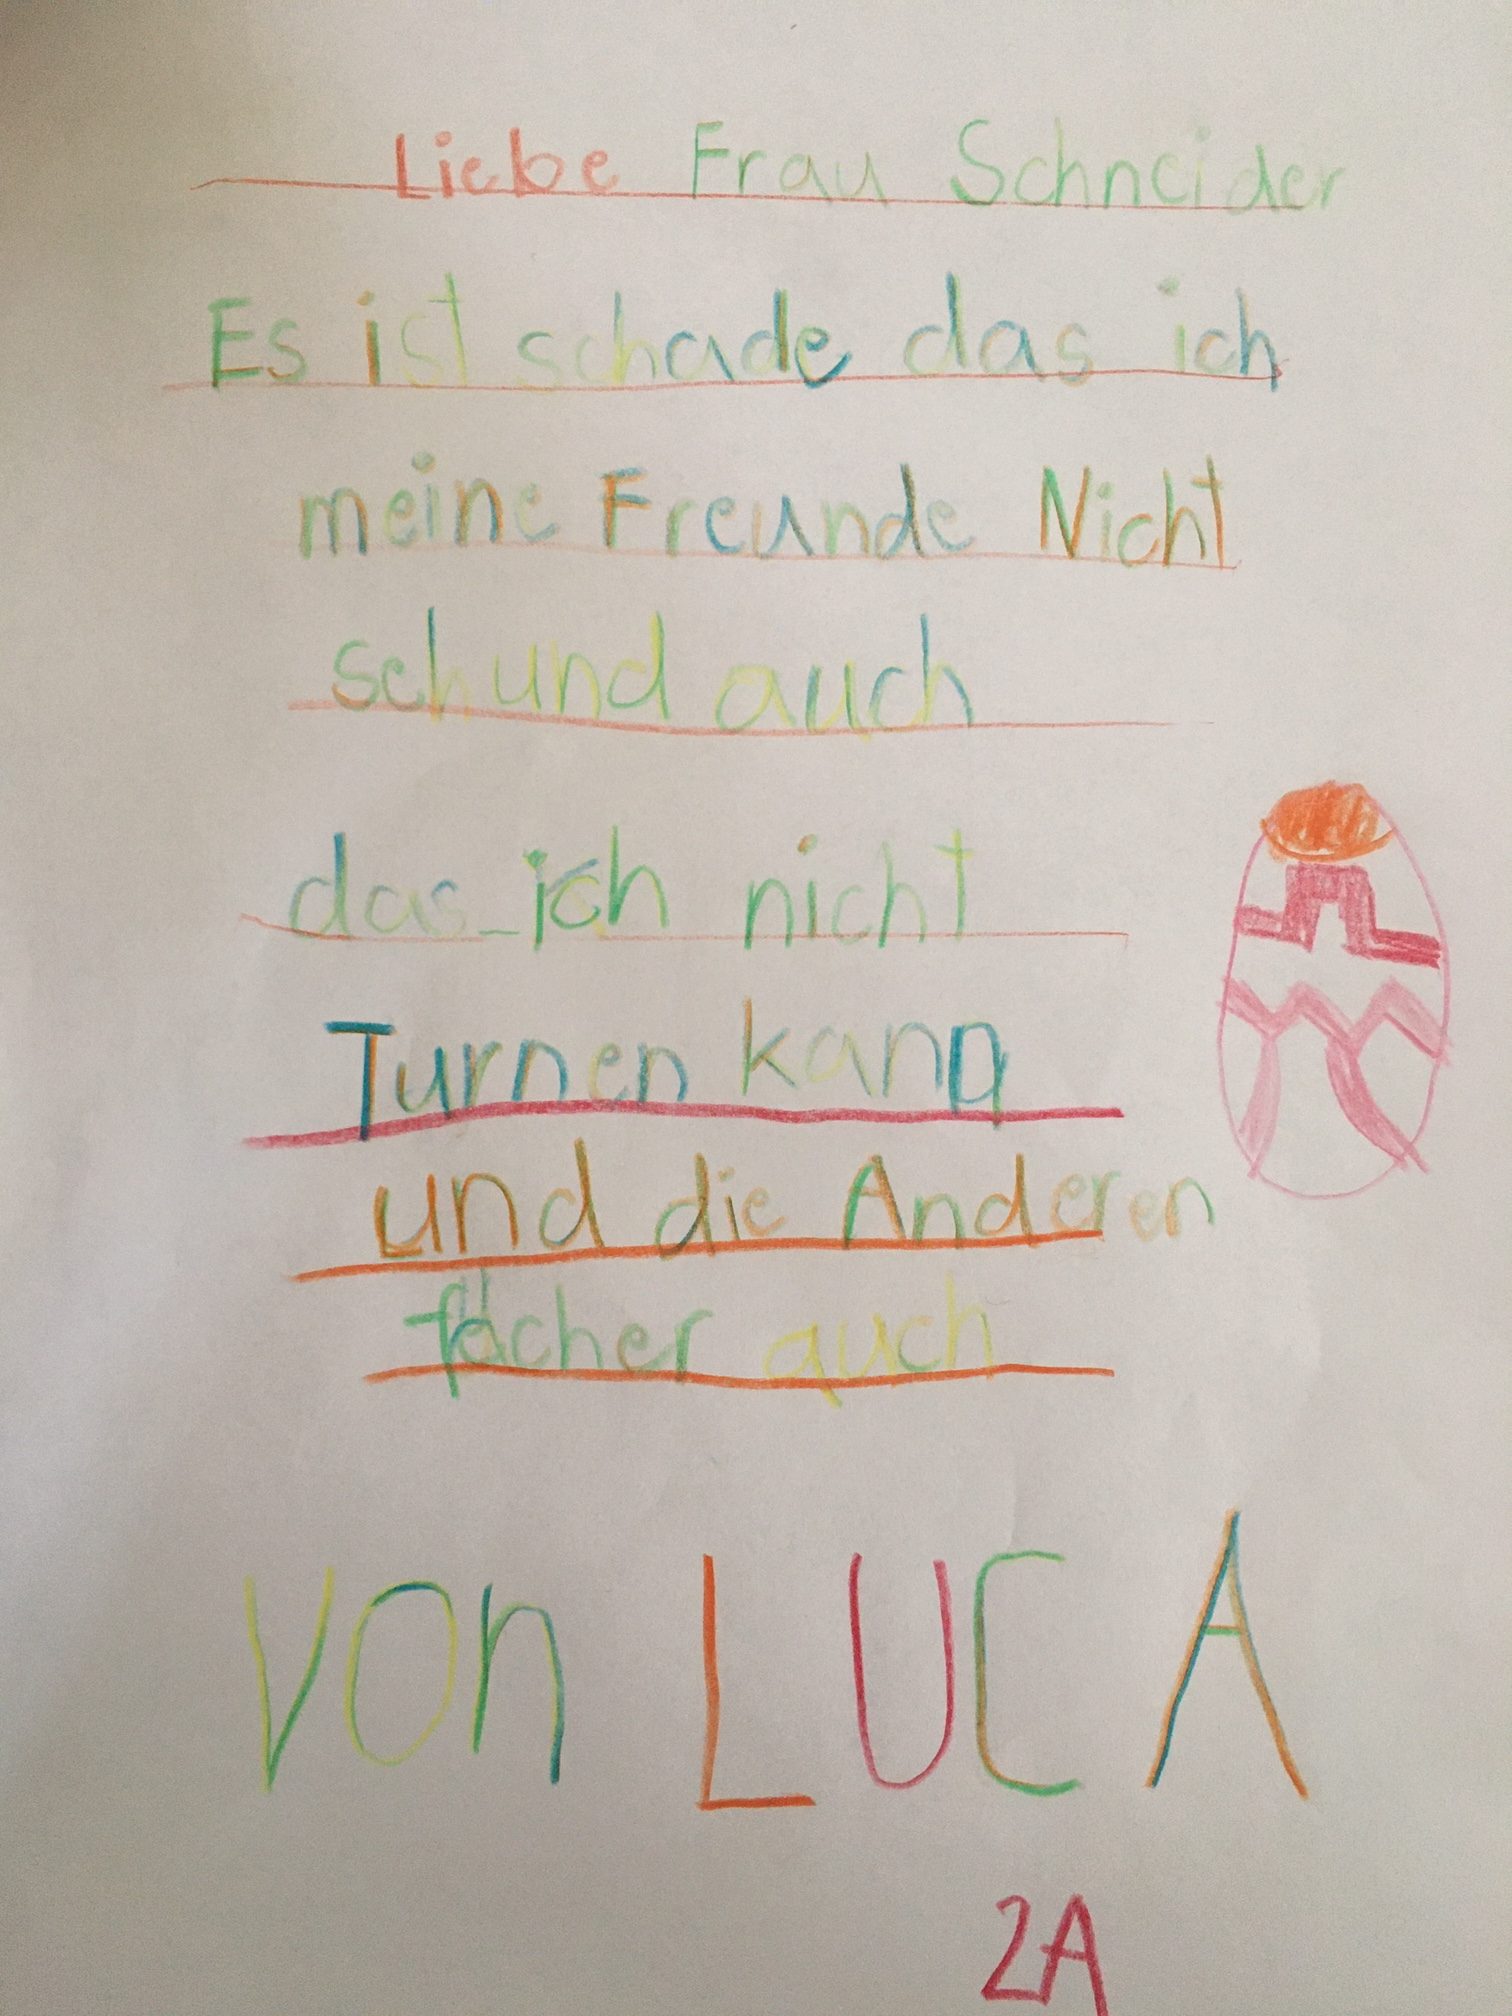 Liebe Frau Schneider
Es ist schade das ich
meine Freunde Nicht
seh und auch
das ich nicht
Turnen kann
und die Anderen
fächer auch
von LUCA
2A